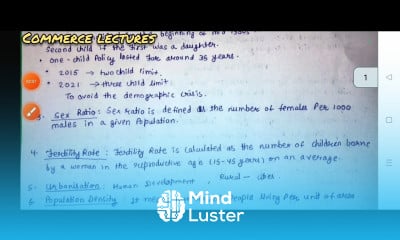 COMMERCE LECTURES
beginning of mid 1980s
second child if the first was a daughter.
• one-child Policy lasted for around 35 years.
• 2015 → two child limit.
• 2021 → three child limit.
To avoid the demographic crisis.
Sex Ratio: Sex ratio is defined as the number of females Per 1000
males in a given Population.
4. Fertility Rate: Fertility Rate is calculated as the number of children borne
by a woman in the reproductive age (15-45 years) on an average.
5. Urbanisation: Human Development, Rural - cities.
6. Population Density: It me People living Per unit of area
1
Mind
Luster